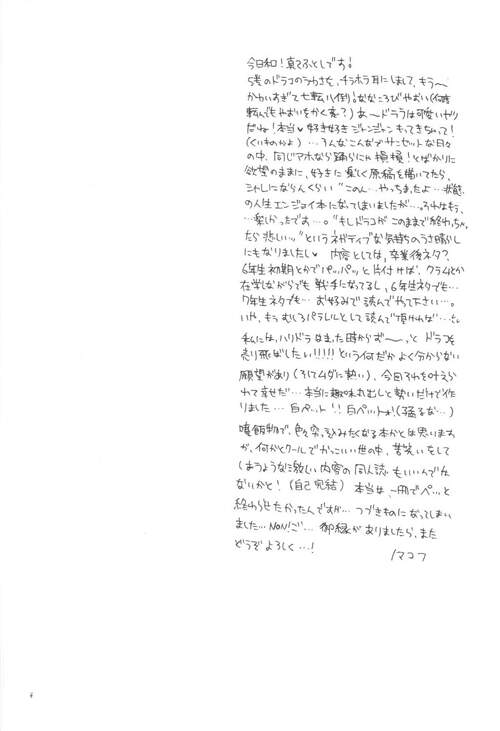 今日和！真てふとしです！
5巻のドラコのうわさを、チラホラ耳にしまして、もう〜
かわいすぎて七転八倒！ななころびやおい(何度
転んでもやおいをかく素？) あ〜ドララは可愛いヤツ
だね！本当♥好き好きジャンジャンもってきちゃって！
(くいものかよ) …そんなこんなでサンセットな日々
の中、同じアホなら踊らにゃ損損！とばかりに
欲望のままに、好きに楽しく原稿を描いてたら、
シャレにならんくらい"このん…やっちまったよ…"状態
の人生エンジョイ本になってしまいましたが…。それはもう、
…楽しかったですョ…。"もしドラコがこのままで終わっちゃ
たら悲しいッ"というネガティブな気持ちのうさ晴らし
にもなりましたし♥ 内容としては、卒業後ネタ？
6年生初期とかでパッパッと片付けば、クラムとか
在学しながらでも戦手になってるし、6年生ネタでも…
7年生ネタでも… お好みで読んでやって下さい…。
いや、もうむしろパラレルとして読んで頂ければ…。
私には、ハリドラはまった時からず〜っとドラコを
売り飛ばしたい!!!!! という何だかよく分からない
願望があり(そしてムダに熱い)、今回それを叶えら
れて幸せだ…本当に趣味丸出しと勢いだけで作
りました…白ペット！！白ペットォ！(強るな…)
噴飯物で、色々突っ込みたくなる本かとは思いますけ
が、何かとクールでかっこいい世の中、苦笑いをして
しまうような激しい内容の同人誌もいいんでは
ないかと！(自己完結) 本当は、一冊でペ…っと
終わらせたかったんですが… つづきものになってしまい
ました…NON！ご… 御縁がありましたら、また
どうぞよろしく…！
ノマコフ